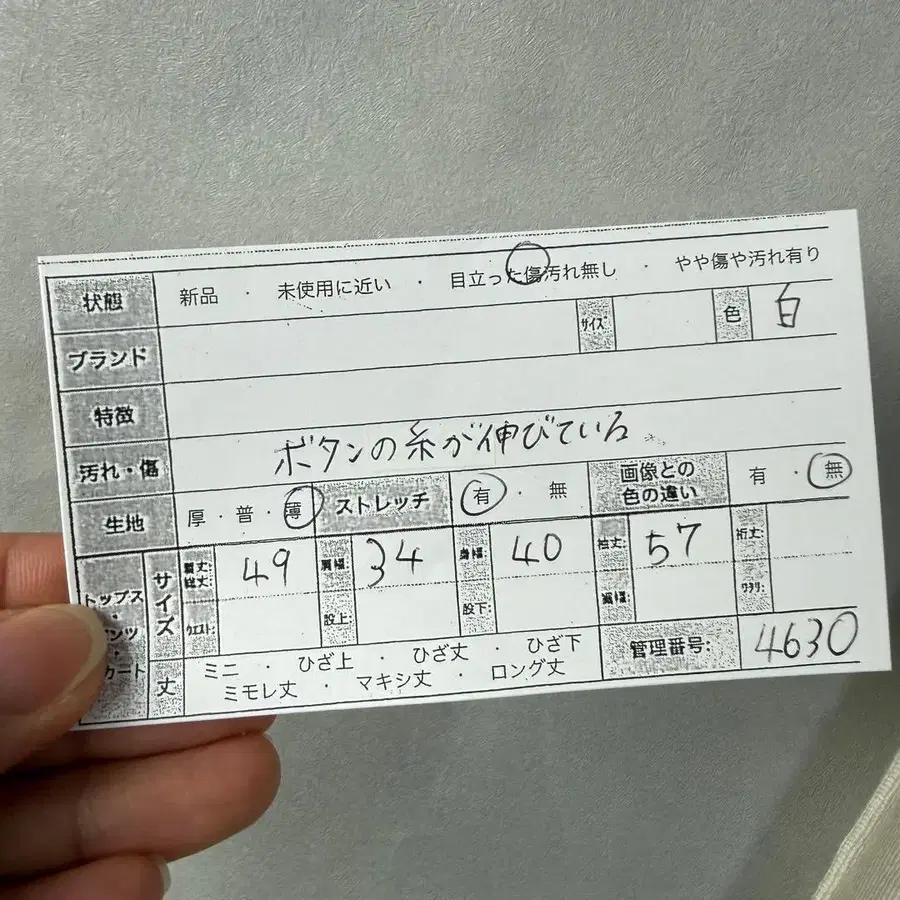 状態 新品 ・ 未使用に近い ・ 目立った傷汚れ無し ・ やや傷や汚れ有り
ブランド サイズ 色 白
特徴
汚れ・傷 ボタンの糸が伸びている
生地 厚・普・薄 ストレッチ 有・無 画像との色の違い 有・無
サイズ 着丈: 総丈: 49 肩幅: 34 身幅: 40 袖丈: 57 裄丈:
トップス ウエスト: 股上: 股下: ワタリ:
丈 ミニ ・ ひざ上 ・ ひざ丈 ・ ひざ下
ミモレ丈 ・ マキシ丈 ・ ロング丈
管理番号: 4630